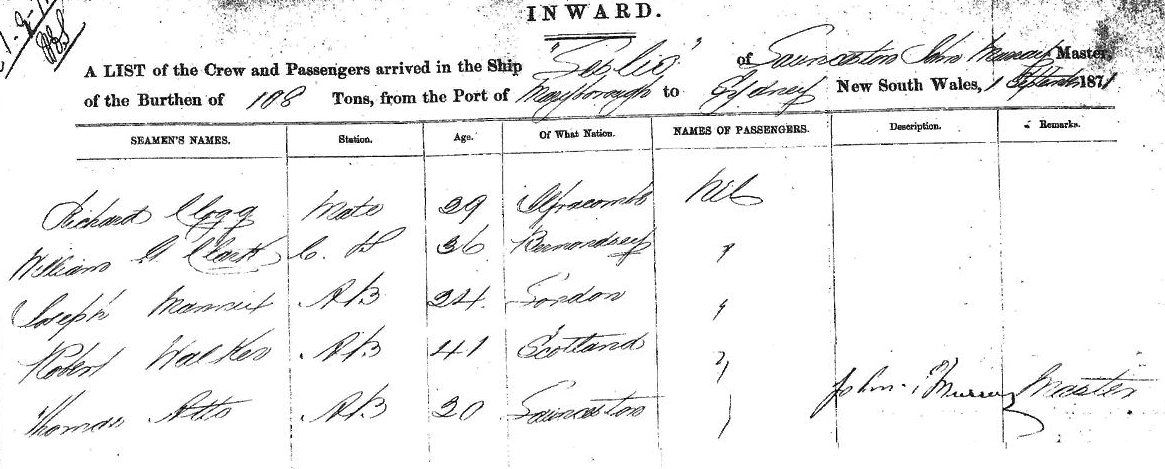 INWARD.
A LIST of the Crew and Passengers arrived in the Ship of Launceston John Murray Master,
of the Burthen of 108 Tons, from the Port of Maryborough to Sydney New South Wales, 1 September 1871
SEAMEN'S NAMES. Station. Age. Of What Nation. NAMES OF PASSENGERS. Description. Remarks.
Richard Clogg Mate 29 Ilfracombe Nil
William G Clark C. S 36 Bermondsey "
Joseph AB 24 London "
Robert Walker AB 41 Scotland "
Thomas AB 20 Launceston "
John Murray Master